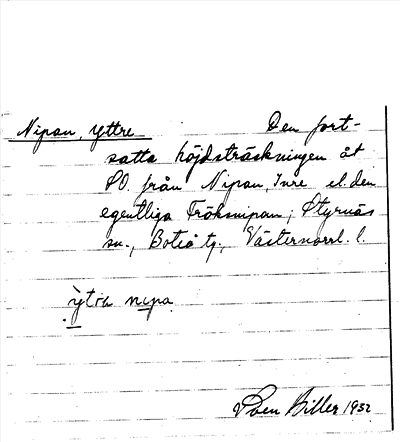 Nipan, Yttre Den fort-
satta höjdsträckningen åt
SO. från Nipan, Inre el. den
egentliga Tröksnipan; Styrnäs
sn., Boteå tg., Västernorrl. l.
ỳtra nipa
Sven Biller 1932